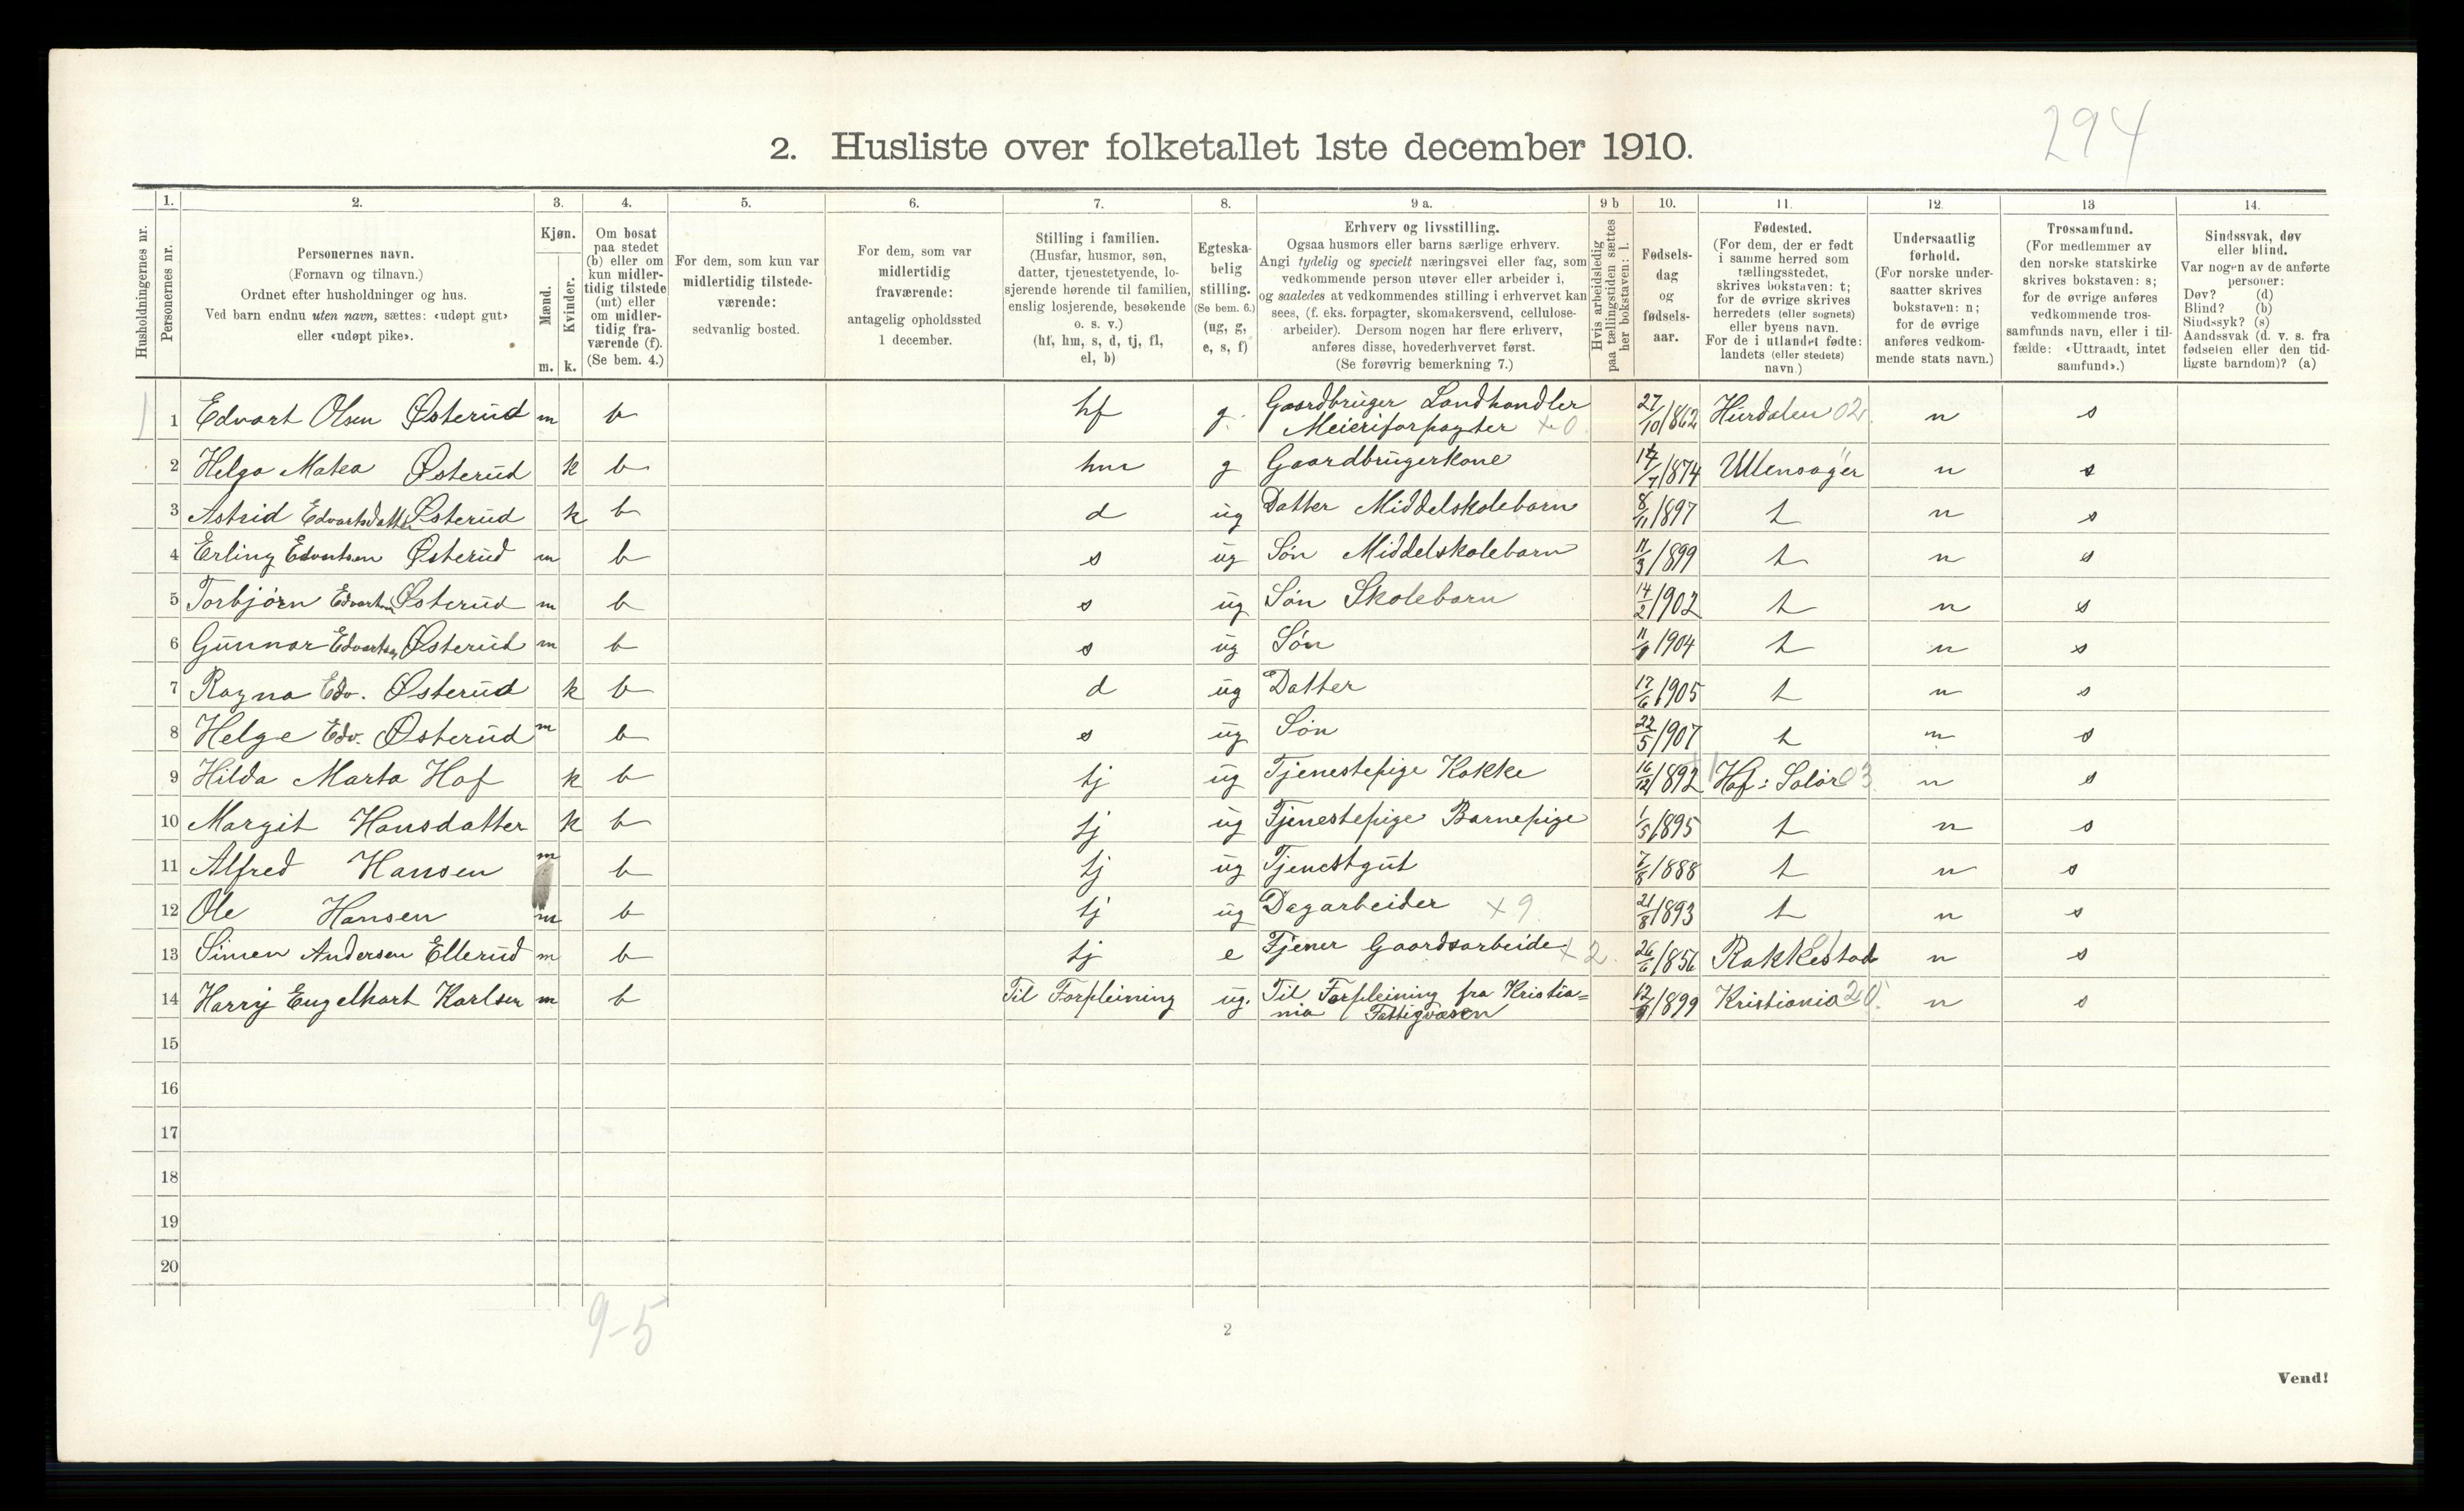 294
2. Husliste over folketallet 1ste december 1910.
Husholdningernes nr.
1. Personernes nr.
2. Personernes navn.
(Fornavn og tilnavn.)
Ordnet efter husholdninger og hus.
Ved barn endnu uten navn, sættes: «udøpt gut»
eller «udøpt pike».
3. Kjøn.
Mænd. m.
Kvinder. k.
4. Om bosat
paa stedet
(b) eller om
kun midler-
tidig tilstede
(mt) eller
om midler-
tidig fra-
værende (f).
(Se bem. 4.)
5. For dem, som kun var
midlertidig tilstede-
værende:
sedvanlig bosted.
6. For dem, som var
midlertidig
fraværende:
antagelig opholdssted
1 december.
7. Stilling i familien.
(Husfar, husmor, søn,
datter, tjenestetyende, lo-
sjerende hørende til familien,
enslig losjerende, besøkende
o. s. v.)
(hf, hm, s, d, tj, fl,
el, b)
8. Egteska-
belig
stilling.
(Se bem. 6.)
(ug, g,
e, s, f)
9 a. Erhverv og livsstilling.
Ogsaa husmors eller barns særlige erhverv.
Angi tydelig og specielt næringsvei eller fag, som
vedkommende person utøver eller arbeider i,
og saaledes at vedkommendes stilling i erhvervet kan
sees, (f. eks. forpagter, skomakersvend, cellulose-
arbeider). Dersom nogen har flere erhverv,
anføres disse, hovederhvervet først.
(Se forøvrig bemerkning 7.)
9 b Hvis arbeidsledig
paa tællingstiden sættes
her bokstaven: l.
10. Fødsels-
dag
og
fødsels-
aar.
11. Fødested.
(For dem, der er født
i samme herred som
tællingsstedet,
skrives bokstaven: t;
for de øvrige skrives
herredets (eller sognets)
eller byens navn.
For de i utlandet fødte:
landets (eller stedets)
navn.)
12. Undersaatlig
forhold.
(For norske under-
saatter skrives
bokstaven: n;
for de øvrige
anføres vedkom-
mende stats navn.)
13 Trossamfund.
(For medlemmer av
den norske statskirke
skrives bokstaven: s;
for de øvrige anføres
vedkommende tros-
samfunds navn, eller i til-
fælde: «Uttraadt, intet
samfund».)
14. Sindssvak, døv
eller blind.
Var nogen av de anførte
personer:
Døv? (d)
Blind? (b)
Sindssyk? (s)
Aandssvak (d. v. s. fra
fødselen eller den tid-
ligste barndom)? (a)
1 1 Edvart Olsen Østerud m b hf g. Gaardbruger Landhandler
Meieriforpagter +0 27/10/1862 Hurdalen 02. n s
2 Helga Matea Østerud k b hm g Gaardbrugerkone /7/1874 Ullensager n s
3 Astrid Edvartsdatter Østerud k b d ug Datter Middelskolebarn 8/11/1897 t n s
4 Erling Edvartsen Østerud m b s ug Søn Middelskolebarn 11/3/1899 t n s
5 Torbjørn Edvartsen Østerud m b s ug Søn Skolebarn 14/2/1902 t n s
6 Gunnar Edvartsen Østerud m b s ug Søn 11/ 1904 t n s
7 Ragna Edv. Østerud k b d ug Datter 17/6/1905 t n s
8 Helge Edv. Østerud m b s ug Søn 22/5/1907 t n s
9 Hilda Marta Hof k b tj ug Tjenestepige Kokke 16/12/1892 Hof: Solør 03. n s
10 Margit Hansdatter k b tj ug Tjenestepige Barnepige 1/5/1895 t n s
11 Alfred Hansen m b tj ug Tjenestgut 7/8/1888 t n s
12 Ole Hansen m b tj ug Dagarbeider +9. 21/8/1893 t n s
13 Simen Andersen Ellerud m b tj e Tjener Gaardsarbeide +2. 26/6/1856 Rakkestad n s
14 Harry Engelhart Karlsen m b Til Forpleining ug. Til Forpleining fra Kristia=
nia Fattigvæsen 12/9/1899 Kristiania 20. n s
15
16
17
18
19
20
9-5
2
Vend!